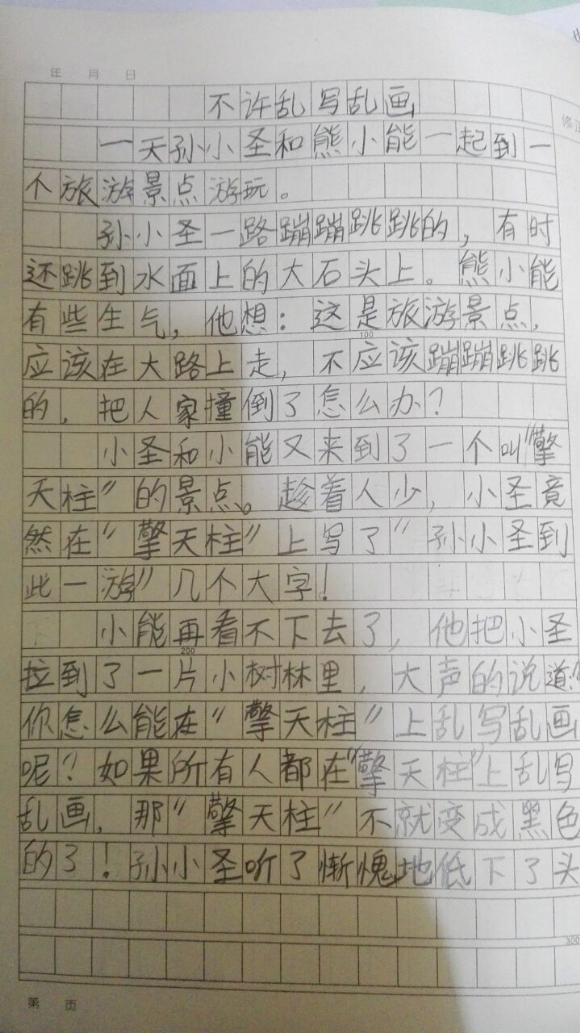 年 月 日
不许乱写乱画
一天孙小圣和熊小能一起到一
个旅游景点游玩。
孙小圣一路蹦蹦跳跳的,有时
还跳到水面上的大石头上。熊小能
有些生气,他想:这是旅游景点,
100
应该在大路上走,不应该蹦蹦跳跳
的,把人家撞倒了怎么办?
小圣和小能又来到了一个叫“擎
天柱”的景点。趁着人少,小圣竟
然在“擎天柱”上写了“孙小圣到
此一游”几个大字!
小能再看不下去了,他把小圣
200
拉到了一片小树林里,大声的说道:“
你怎么能在“擎天柱”上乱写乱画
呢?如果所有人都在“擎天柱”上乱写
乱画,那“擎天柱”不就变成黑色
的了!孙小圣听了惭愧地低下了头
300
第 页